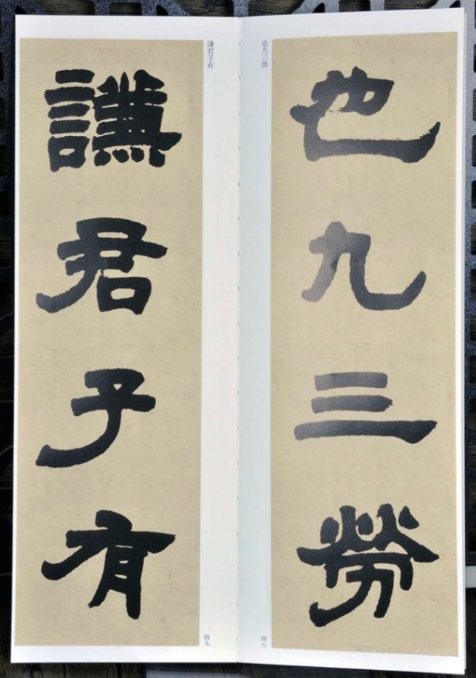 也九三勞
也九三勞
四八
謙君子有
謙君子有
四九